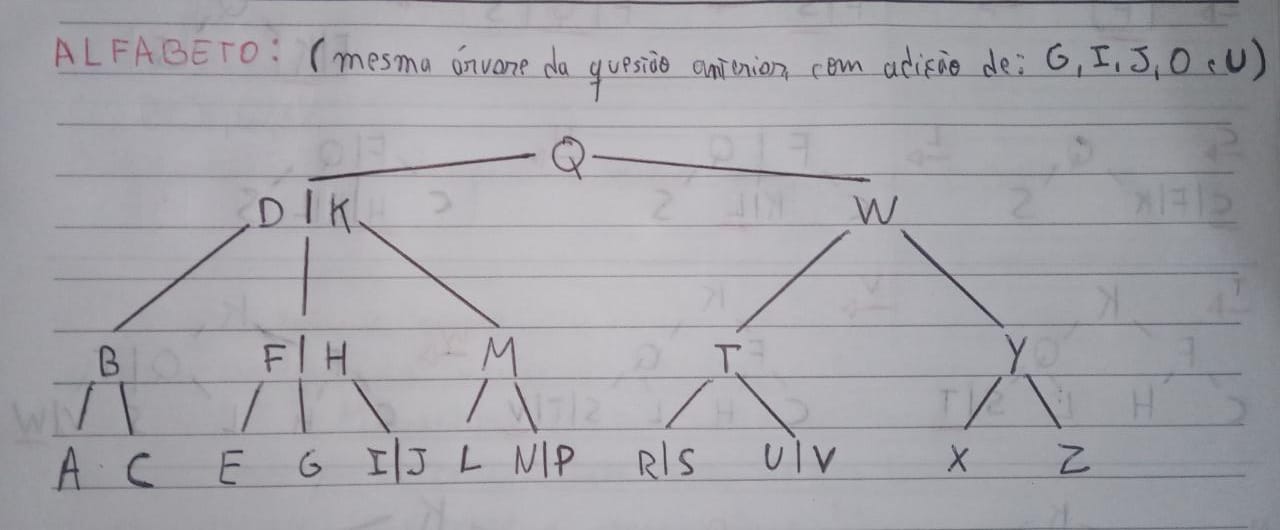 ALFABETO: (mesma árvore da questão anterior, com adição de: G, I, J, O e U)
Q
D | K W
B F | H M T Y
A C E G I|J L N|P R|S U|V X Z